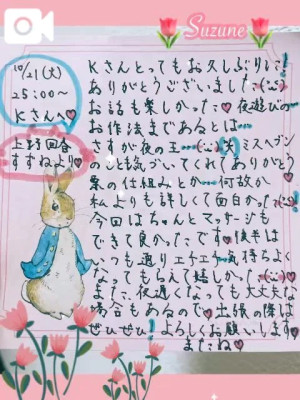 Suzune
10/21(火)
25:00〜
Kさんへ
上野回春
すずねより
Kさんとってもお久しぶりに!
ありがとうございました
お話も楽しかった 夜遊びの
お作法まであるとは…
さすが夜の王… 笑 ミスヘブン
のこと気づいてくれてありがとう
票の仕組みとか…何故か
私よりも詳しくて面白かった
今回はちゃんとマッサージも
できて良かったです 後半は
いつも通りエチエチ気持ちよく
なってもらえて嬉しかった
また、夜遅くなっても大丈夫な
場合もあるので 出張の際は
ぜひぜひ! よろしくお願いします
またね